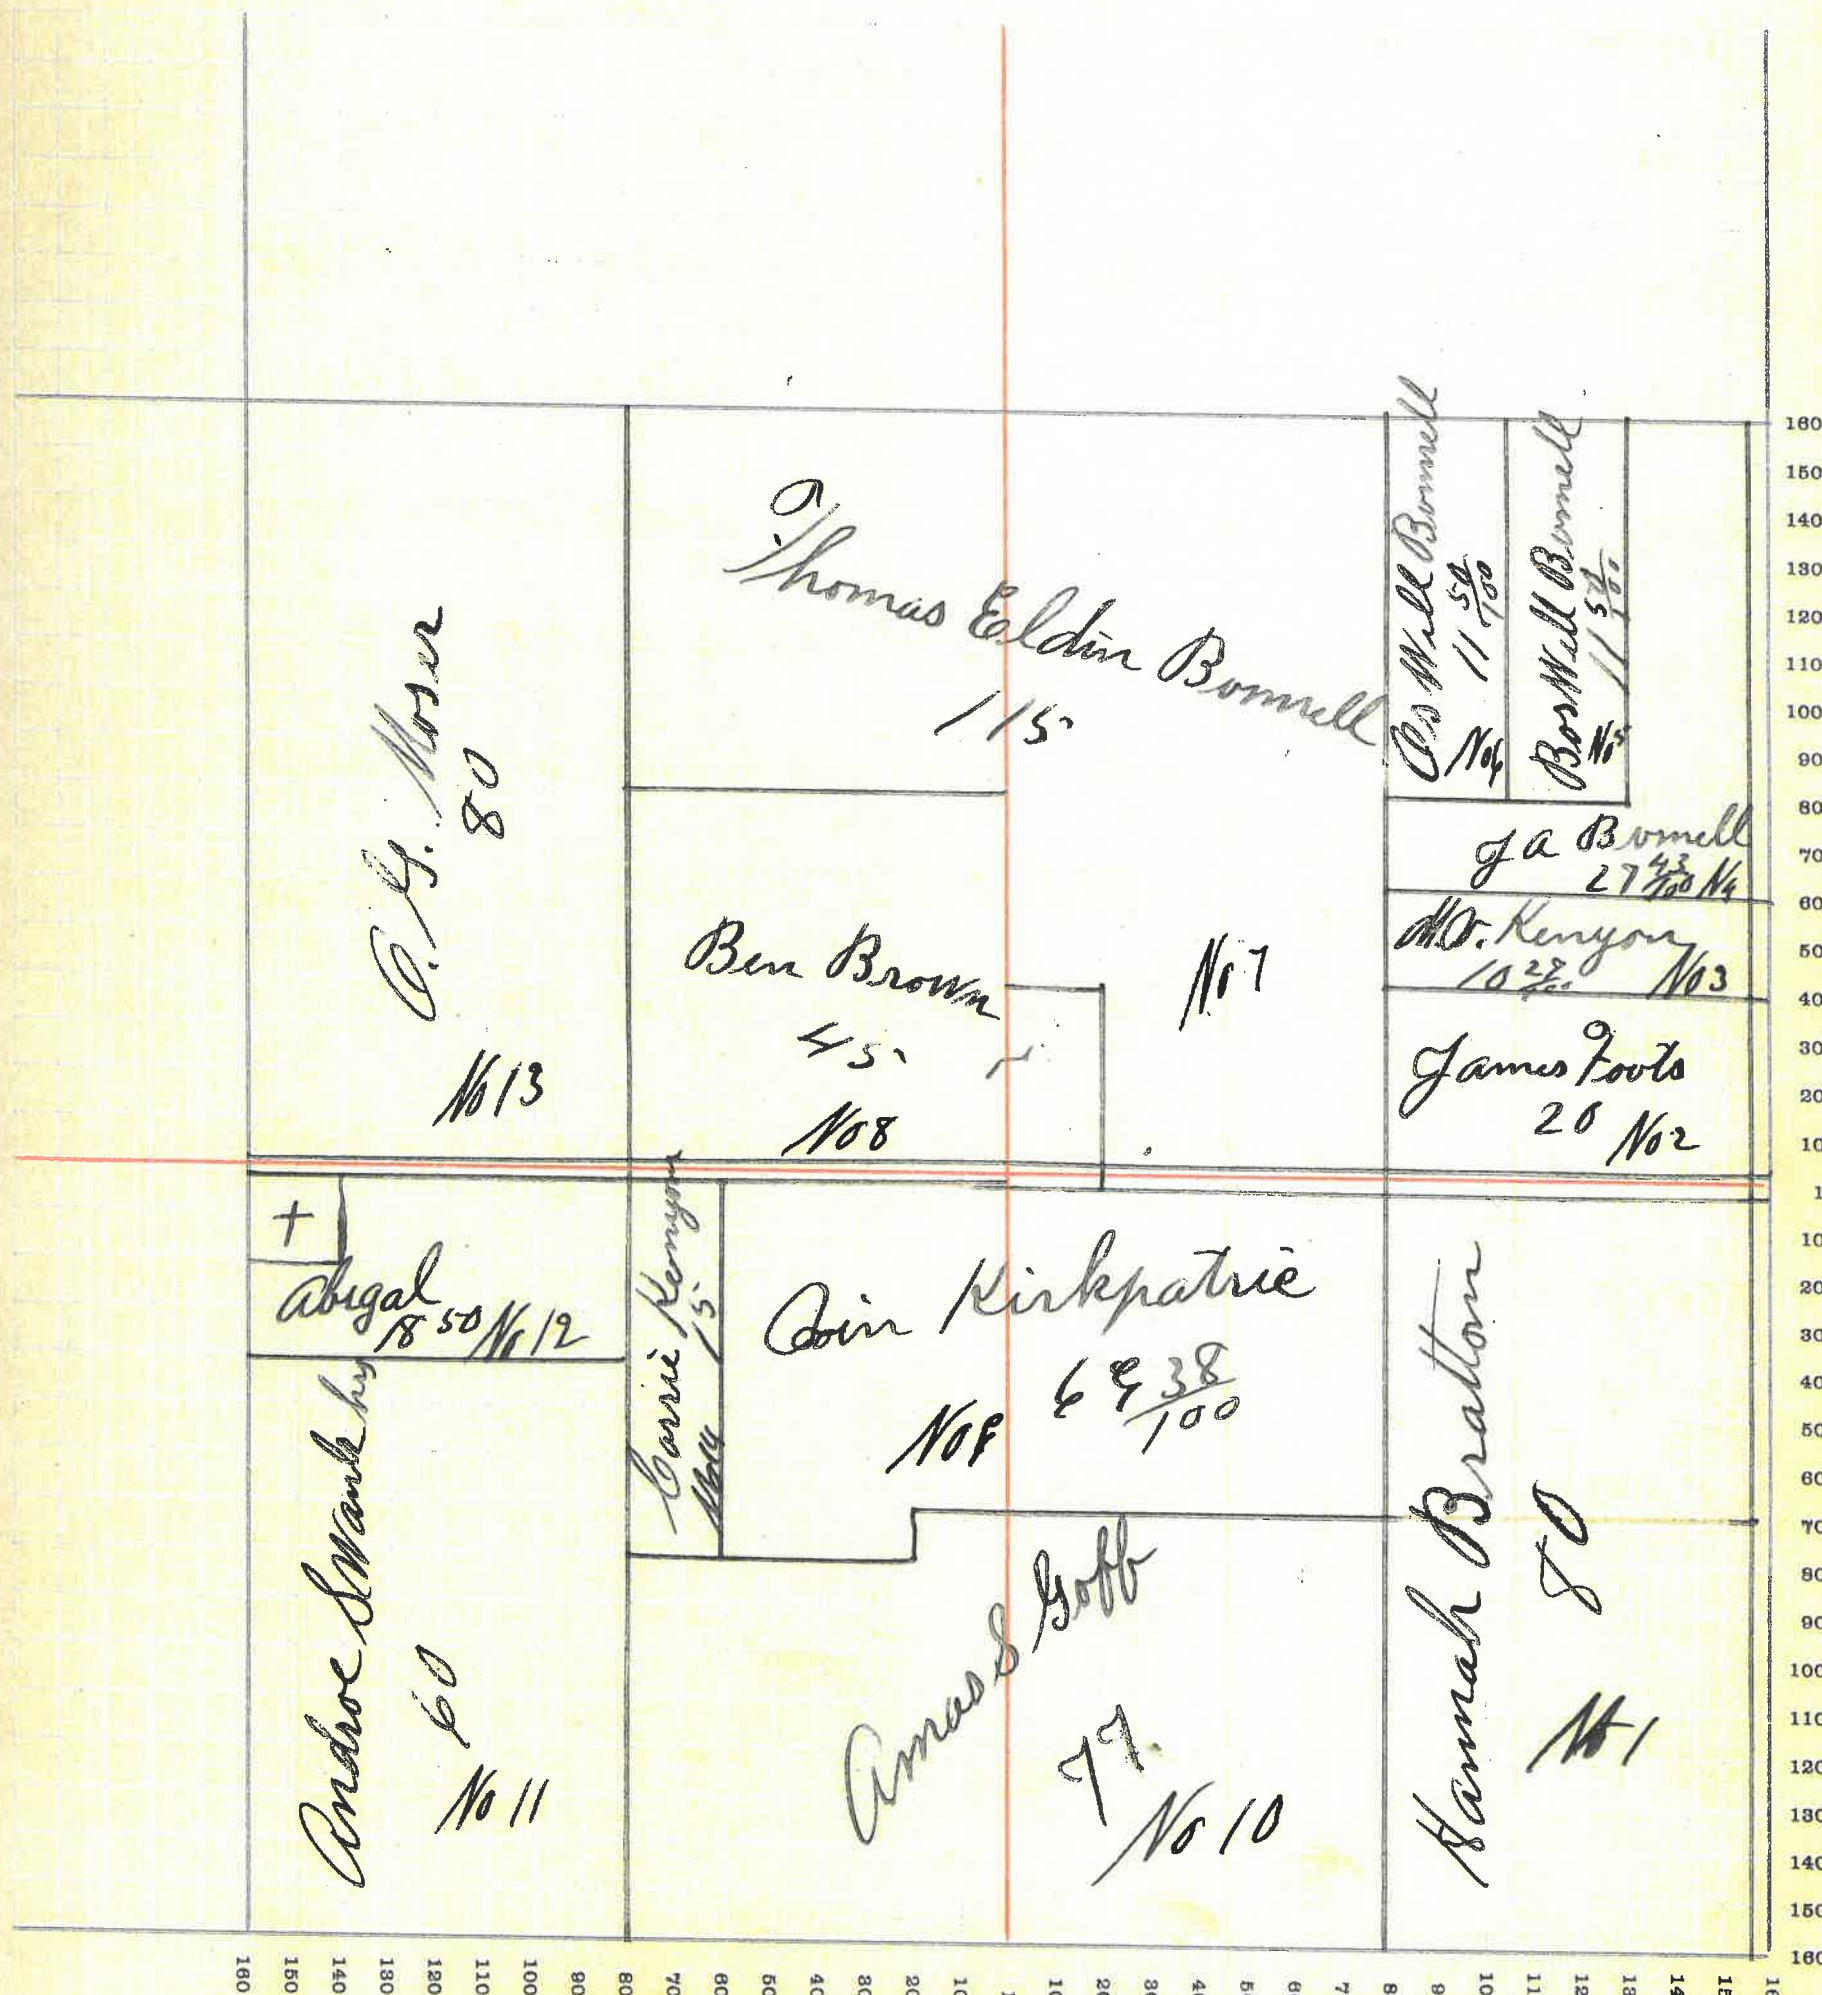 O. G. Moser
80
No 13
Thomas Eldin Bonnell
115
No 7
Os Will Bonnell
11 50/100
No 6
Bos Will Bonnell
11 50/100
No 5
J A Bonnell
27 43/100 No 4
Kenyon
10 27/100 No 3
James Foots
20 No 2
Ben Brown
45
No 8
+
Abigal
18 50 No 12
Androe Swank
60
No 11
Carrie Kenyon
15
No 14
Kirkpatric
38/100
No 9
Amos S Goff
77
No 10
Hannah Bratton
80
No 1
160
150
140
130
120
110
100
90
80
70
60
50
40
30
20
10
1
10
20
30
40
50
60
70
80
90
100
110
120
130
140
150
160
160 150 140 130 120 110 100 90 80 70 60 50 40 30 20 10 1 10 20 30 40 50 60 7 8 9 10 11 12 13 14 15 16